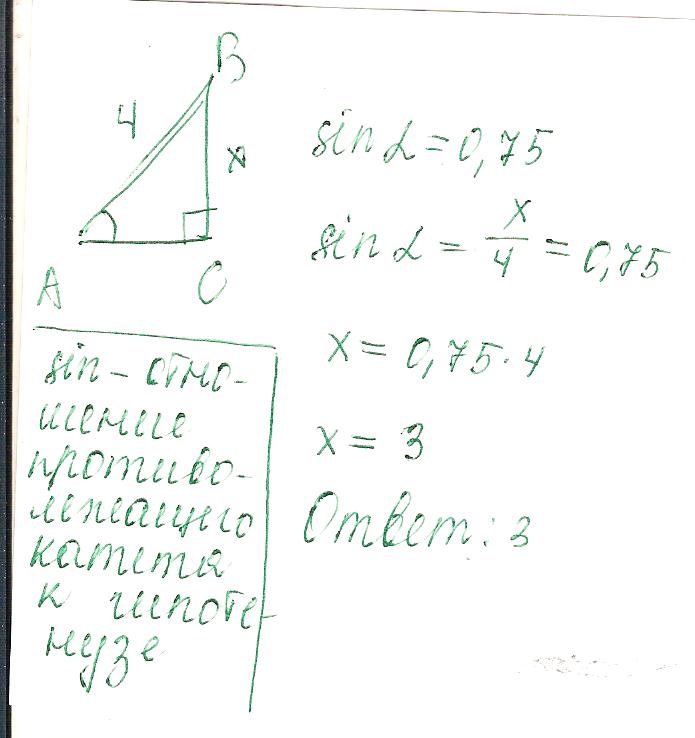 B
4
x
A
C
sin α = 0,75
sin α = x/4 = 0,75
x = 0,75 · 4
x = 3
Ответ: 3
sin – отно-
шение
противо-
лежащего
катета
к гипоте-
нузе